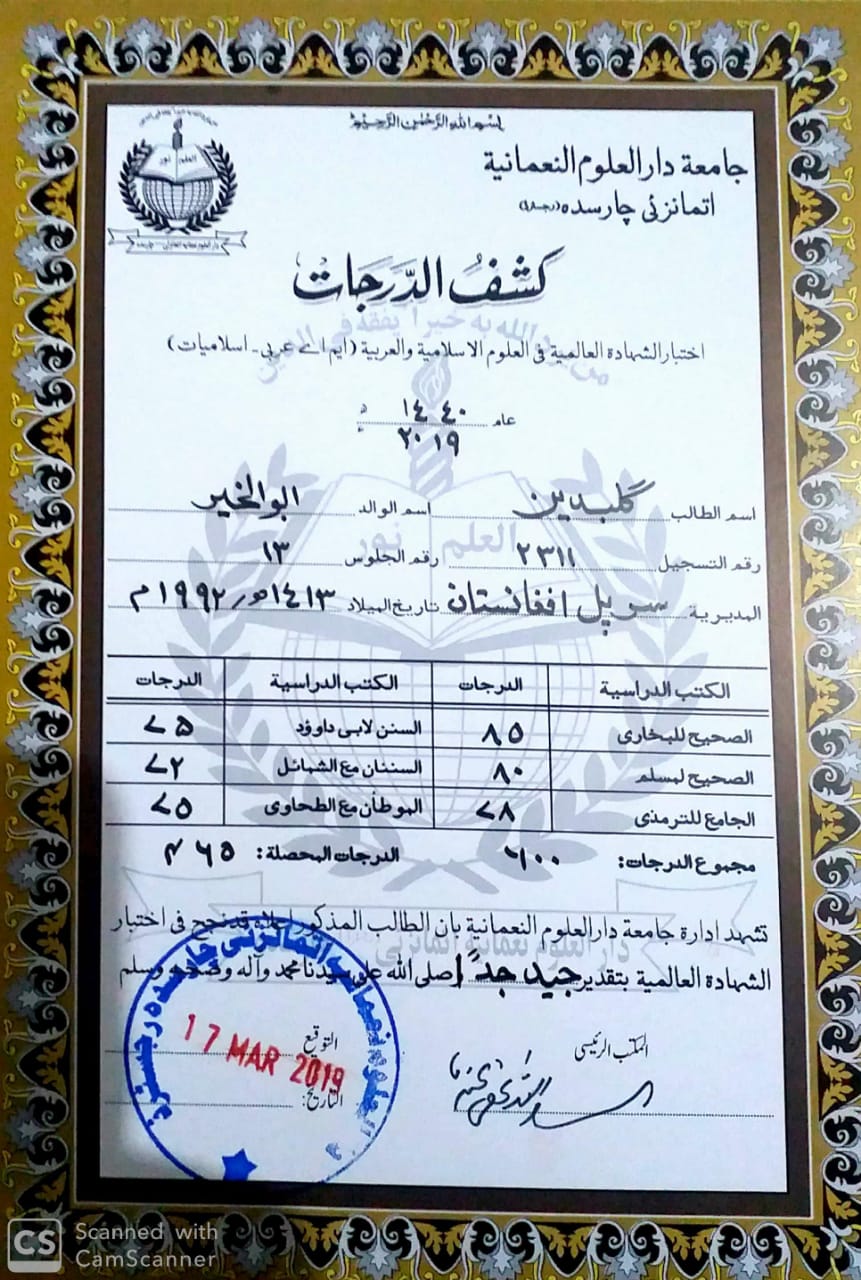 بسم الله الرحمٰن الرحیم
جامعة دار العلوم النعمانية
اتمانزئی چارسده (رجسٹرڈ)
العلم نور
كشفُ الدَّرَجَات
من يرد الله به خيرا يفقه في الدين
اختبار الشهادة العالمية فى العلوم الاسلامية والعربية (ايم اے عربى - اسلاميات)
عام ١٤٤٠ ھ
٢٠١٩ ء
العلم نور
اسم الطالب گلبدین اسم الوالد ابوالخیر
رقم التسجيل ٢٣١١ رقم الجلوس ١٣
المديرية سرپل افغانستان تاريخ الميلاد ١٤١٣ھ ١٩٩٢م
الكتب الدراسية الدرجات الكتب الدراسية الدرجات
الصحيح للبخارى ٨٥ السنن لابى داوؤد ٧٥
الصحيح لمسلم ٨٠ السننان مع الشمائل ٧٢
الجامع للترمذى ٧٨ الموطأن مع الطحاوى ٧٥
مجموع الدرجات: ٦٠٠ الدرجات المحصلة: ۴۶۵
تشهد ادارة جامعة دار العلوم النعمانية بان الطالب المذكور اعلاه قد نجح فى اختبار
الشهادة العالمية بتقدير جيد جداً صلى الله على سيدنا محمد وآله وصحبه وسلم
المكتب الرئيسى التوقيع
التاريخ:
17 MAR 2019
CS Scanned with
CamScanner